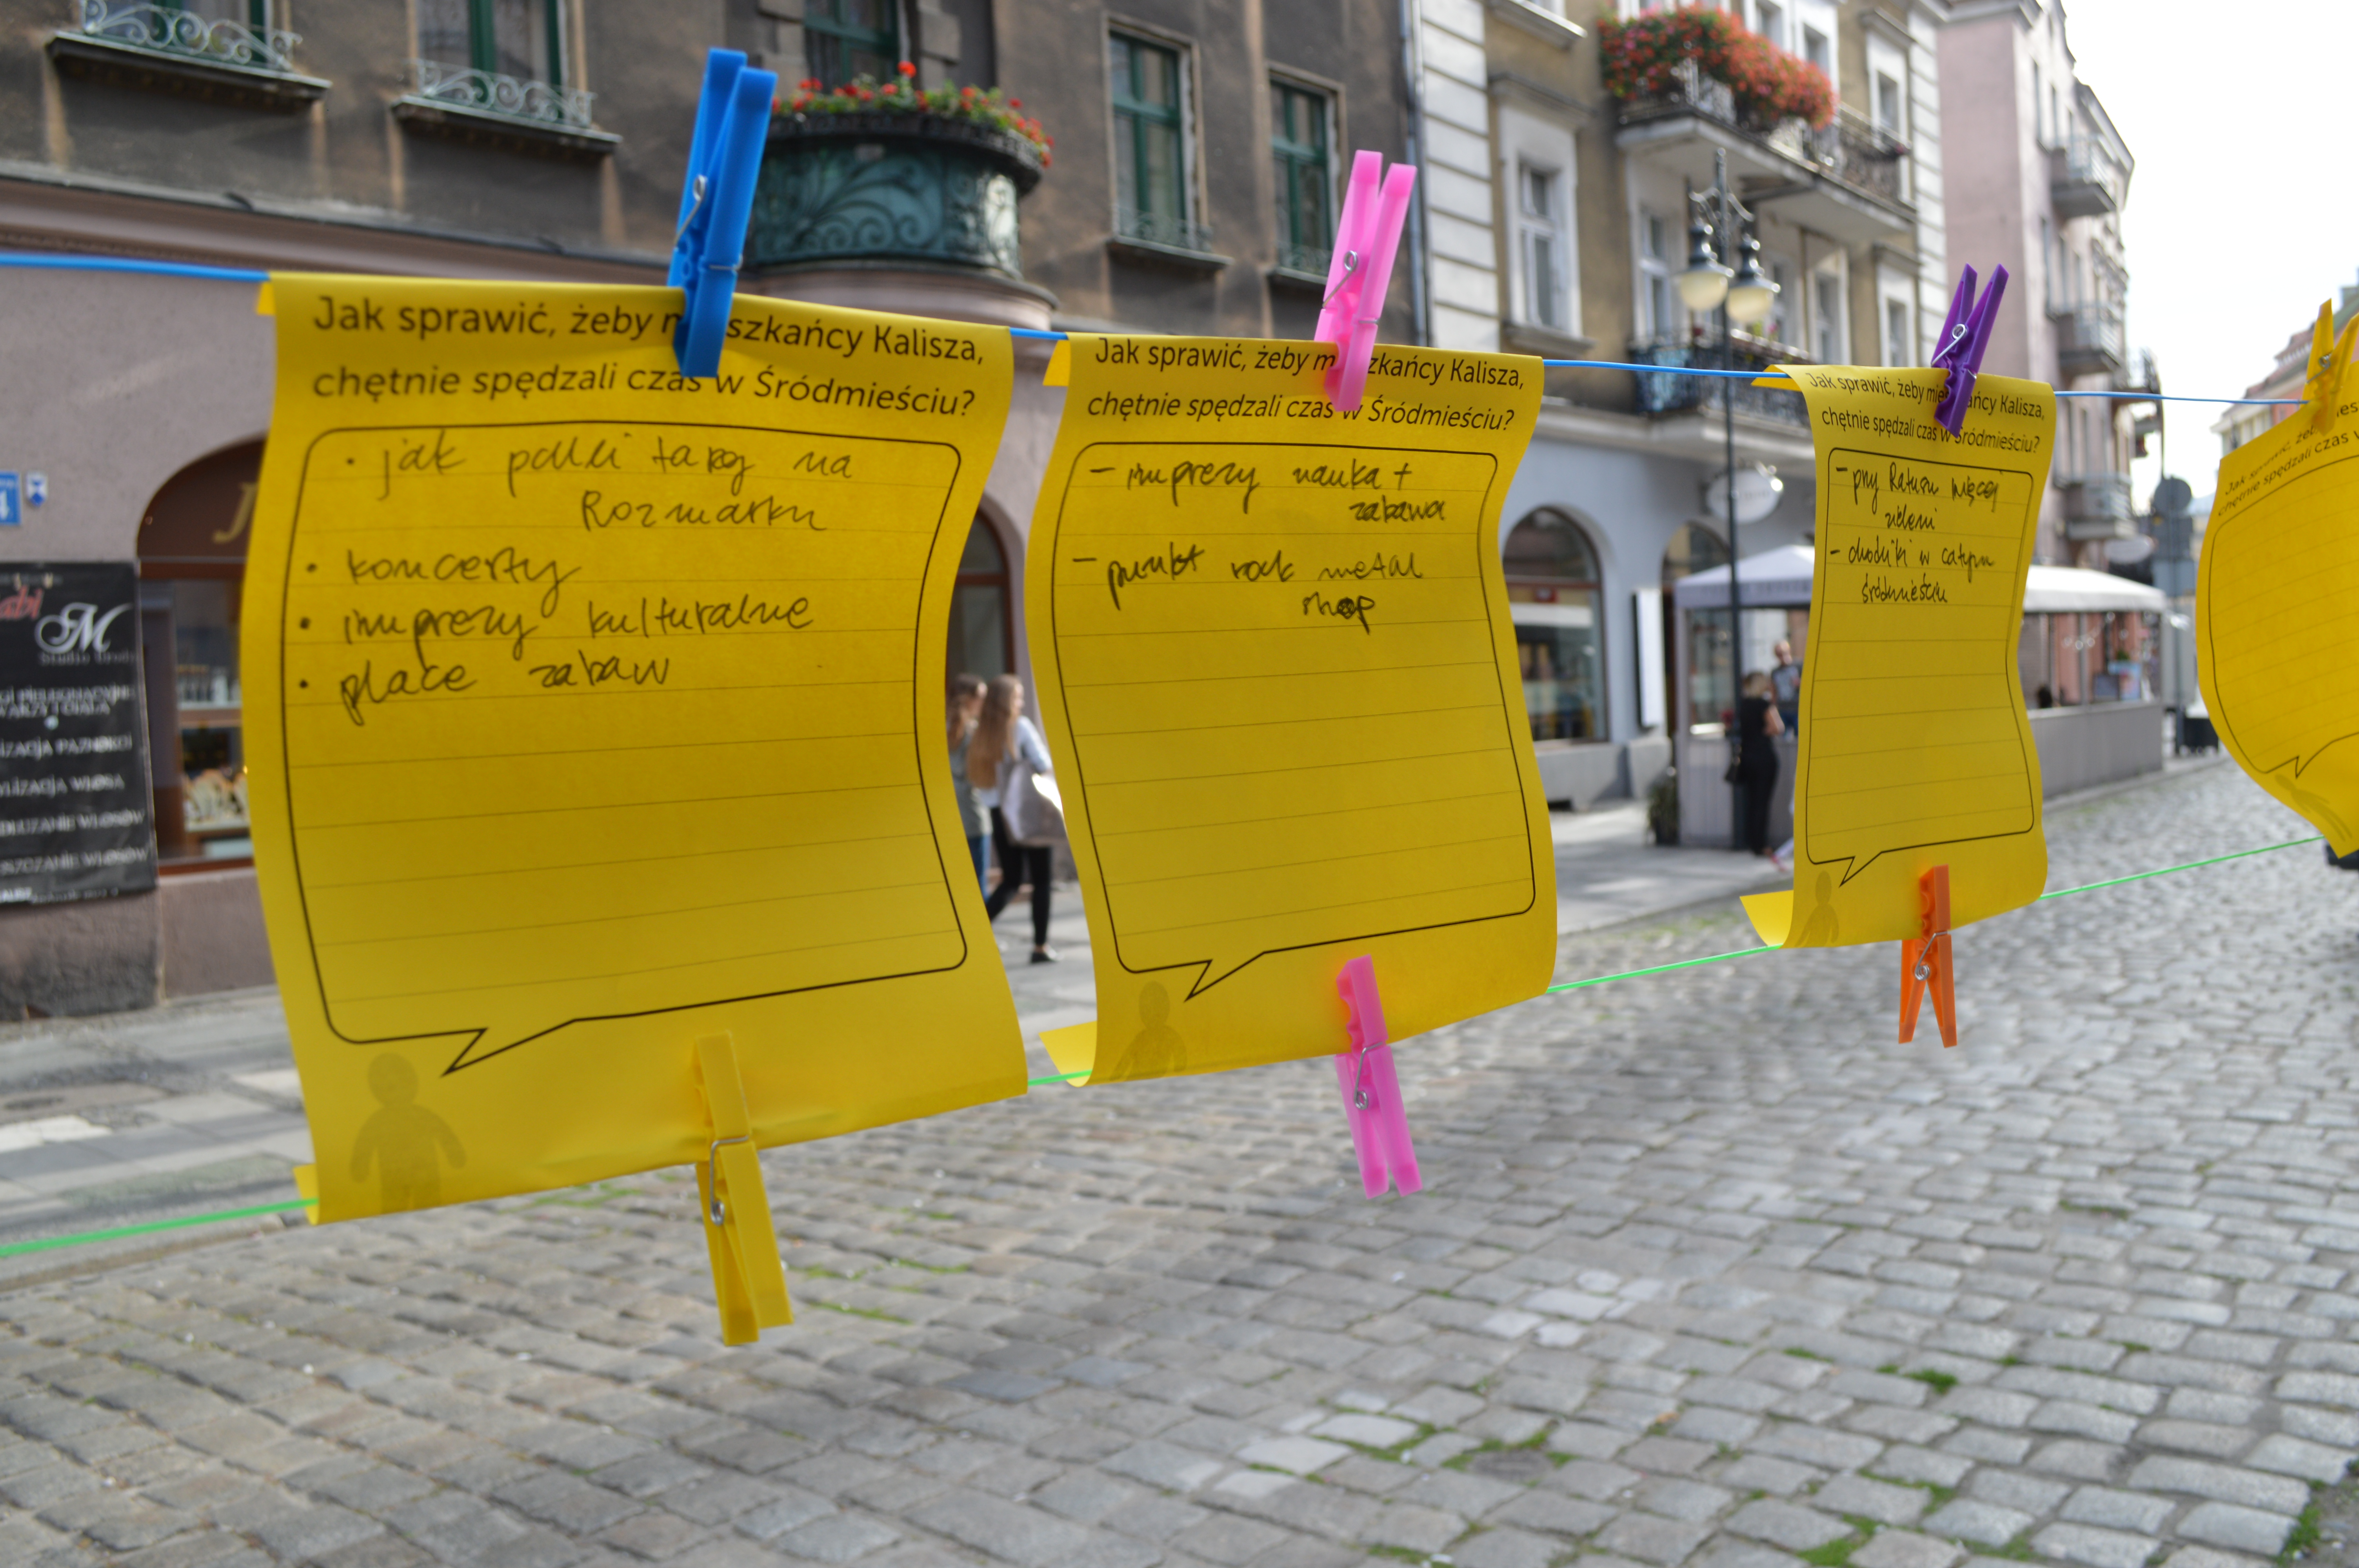 Jak sprawić, żeby m szkańcy Kalisza,
chętnie spędzali czas w Śródmieściu?
• jak targ na
Rozmarku
• koncerty
• imprezy kulturalne
• place zabaw
Jak sprawić, żeby m zkańcy Kalisza,
chętnie spędzali czas w Śródmieściu?
– imprezy nauka +
zabawa
– punkt rock metal
shop
Jak sprawić, żeby mie ańcy Kalisza,
chętnie spędzali czas w Śródmieściu?
– przy Ratuszu więcej
zieleni
– chodniki w całym
śródmieściu
Jak sprawić, że
chętnie spędzali czas
M
Studio Urody